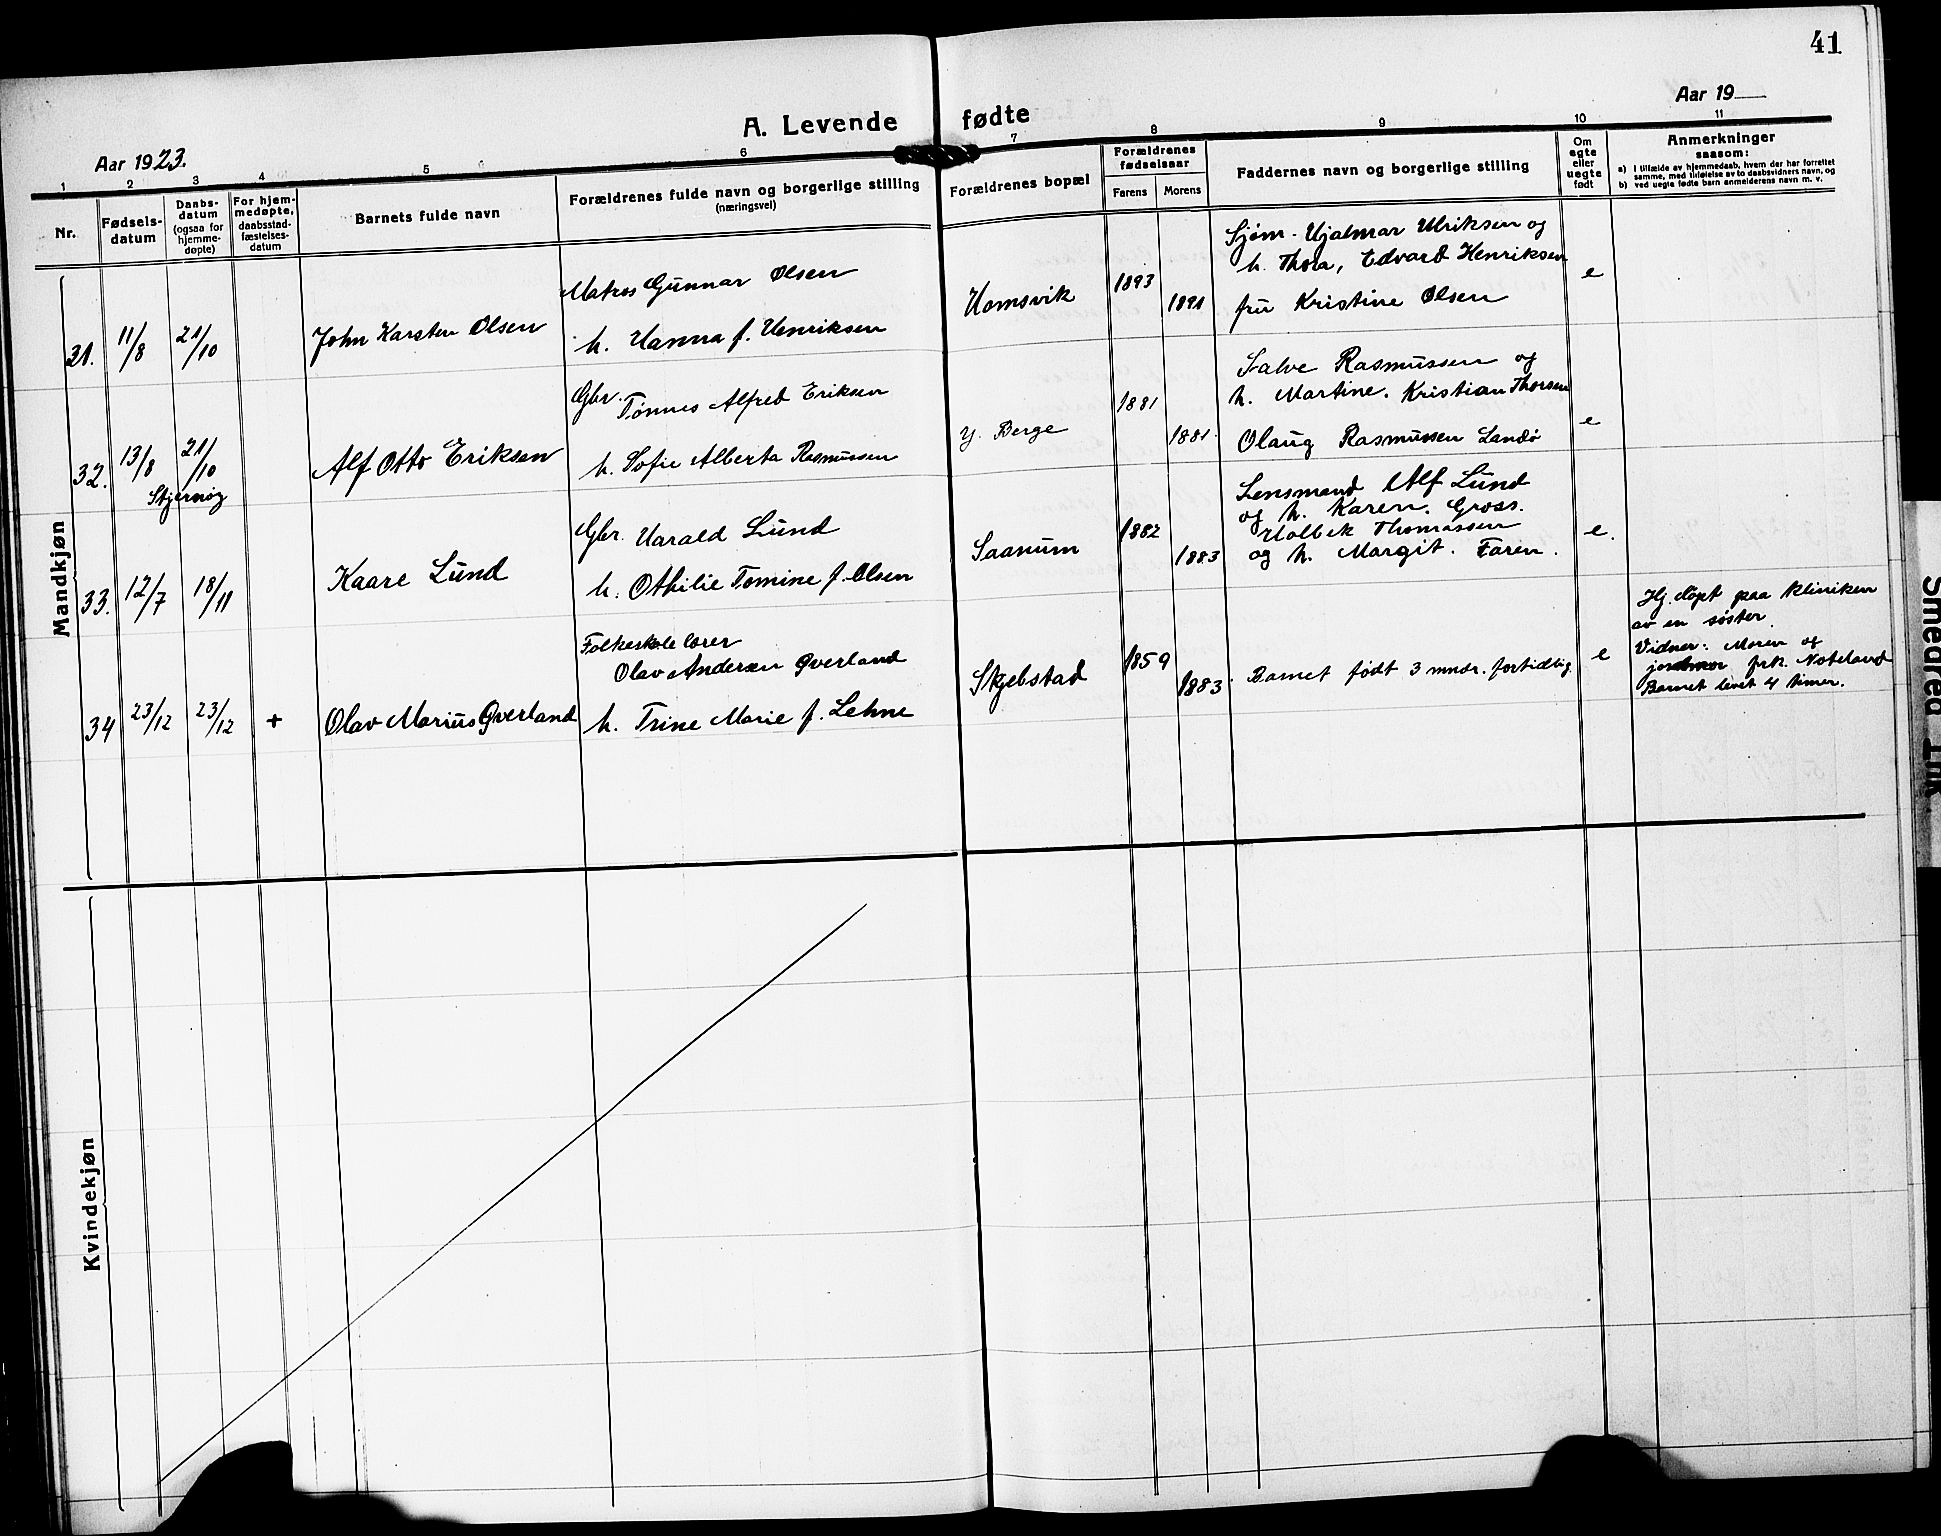 41
A. Levende fødte
Aar 1923.
Aar 19
1 2 3 4 5 6 7 8 9 10 11
Nr.
Fødsels-
datum
Daabs-
datum
(ogsaa for
hjemme-
døpte)
For hjem-
medøpte,
daabsstad-
fæstelses-
datum
Barnets fulde navn
Forældrenes fulde navn og borgerlige stilling
(næringsvei)
Forældrenes bopæl
Forældrenes
fødselsaar
Farens Morens
Faddernes navn og borgerlige stilling
Om
egte
eller
uegte
født
Anmerkninger
saasom:
a) I tilfælde av hjemmedaab, hvem der har forrettet
samme, med tilføielse av to daabsvidners navn, og
b) ved uegte fødte barn anmelderens navn m. v.
Mandkjøn
31. 11/8 21/10 John Karsten Olsen
Matros Gunnar Olsen
h. Hanna f. Henriksen
Homsvik 1893 1891
Sjøm. Hjalmar Ulriksen og
h. Thora, Edvard Henriksen
fru Kristine Olsen
e
32. 13/8 21/10 Alf Otto Eriksen
Gbr. Tønnes Alfred Eriksen
h. Sofie Alberta Rasmussen
Y. Berge 1881 1881.
Salve Rasmussen og
h. Martine. Kristian Thorsen
Olaug Rasmussen Landø
e
Stjernøy
33. 12/7 18/11 Kaare Lund
Gbr. Harald Lund
h. Othilie Tomine f. Olsen
Saanum 1882 1883
Lensmand Alf Lund
og h. Karen. Gross.
Holbek Thomassen
og h. Margit. Faren.
e.
34 23/12 23/12 + Olav Marius Øverland
Folkeskolelærer
Olav Andersen Øverland
h. Trine Marie f. Lehne
Skjebstad 1859 1883.
Barnet født 3 mndr. fortidlig.
e
Hj. døpt paa kliniken
av en søster.
Vidner: Moren og
jordmor frk. Nøteland
Barnet levet 4 timer.
Kvindekjøn
Smedrød